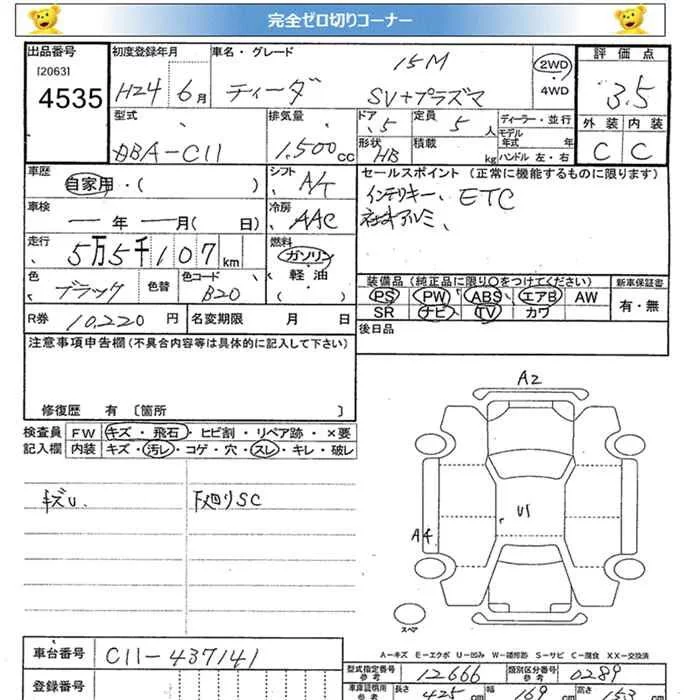 完全ゼロ切りコーナー
出品番号 初度登録年月 車名・グレード 15M 2WD・4WD 評価点
[2063] 4535 H24 6月 ティーダ SV+プラズマ 3.5
型式 排気量 ドア 5 定員 5人 ディーラー・並行 外装 内装
DBA-C11 1,500cc 形状 HB 積載 kg モデル年式 年 ハンドル 左・右 C C
車歴 自家用・( ) シフト A/T セールスポイント(正常に機能するものに限ります)
車検 ー年ー月( 日) 冷房 AAC インテリキー、ETC
社外アルミ、
走行 5万5千107km 燃料 ガソリン・軽油 ( )
色 ブラック 色替 色コード B20 装備品(純正品に限り○をつけてください) 新車保証書
PS PW ABS エアB AW 有・無
SR ナビ TV カワ
R券 10,220円 名変期限 月 日 後日品
注意事項申告欄(不具合内容等は具体的に記入して下さい)
修復歴 有 〔箇所 〕
検査員 FW キズ・飛石・ヒビ割・リペア跡・×要
記入欄 内装 キズ・汚レ・コゲ・穴・スレ・キレ・破レ
キズU、 下廻りSC
A2
U1
A4
スペア
A-キズ E-エクボ U-凹み W-補修跡 S-サビ C-腐食 XX-交換済
車台番号 C11-437141
型式指定番号 参考 12666 類別区分番号 参考 0289
登録番号 車庫証明用 参考 長さ 425cm 幅 169cm 高さ 153cm